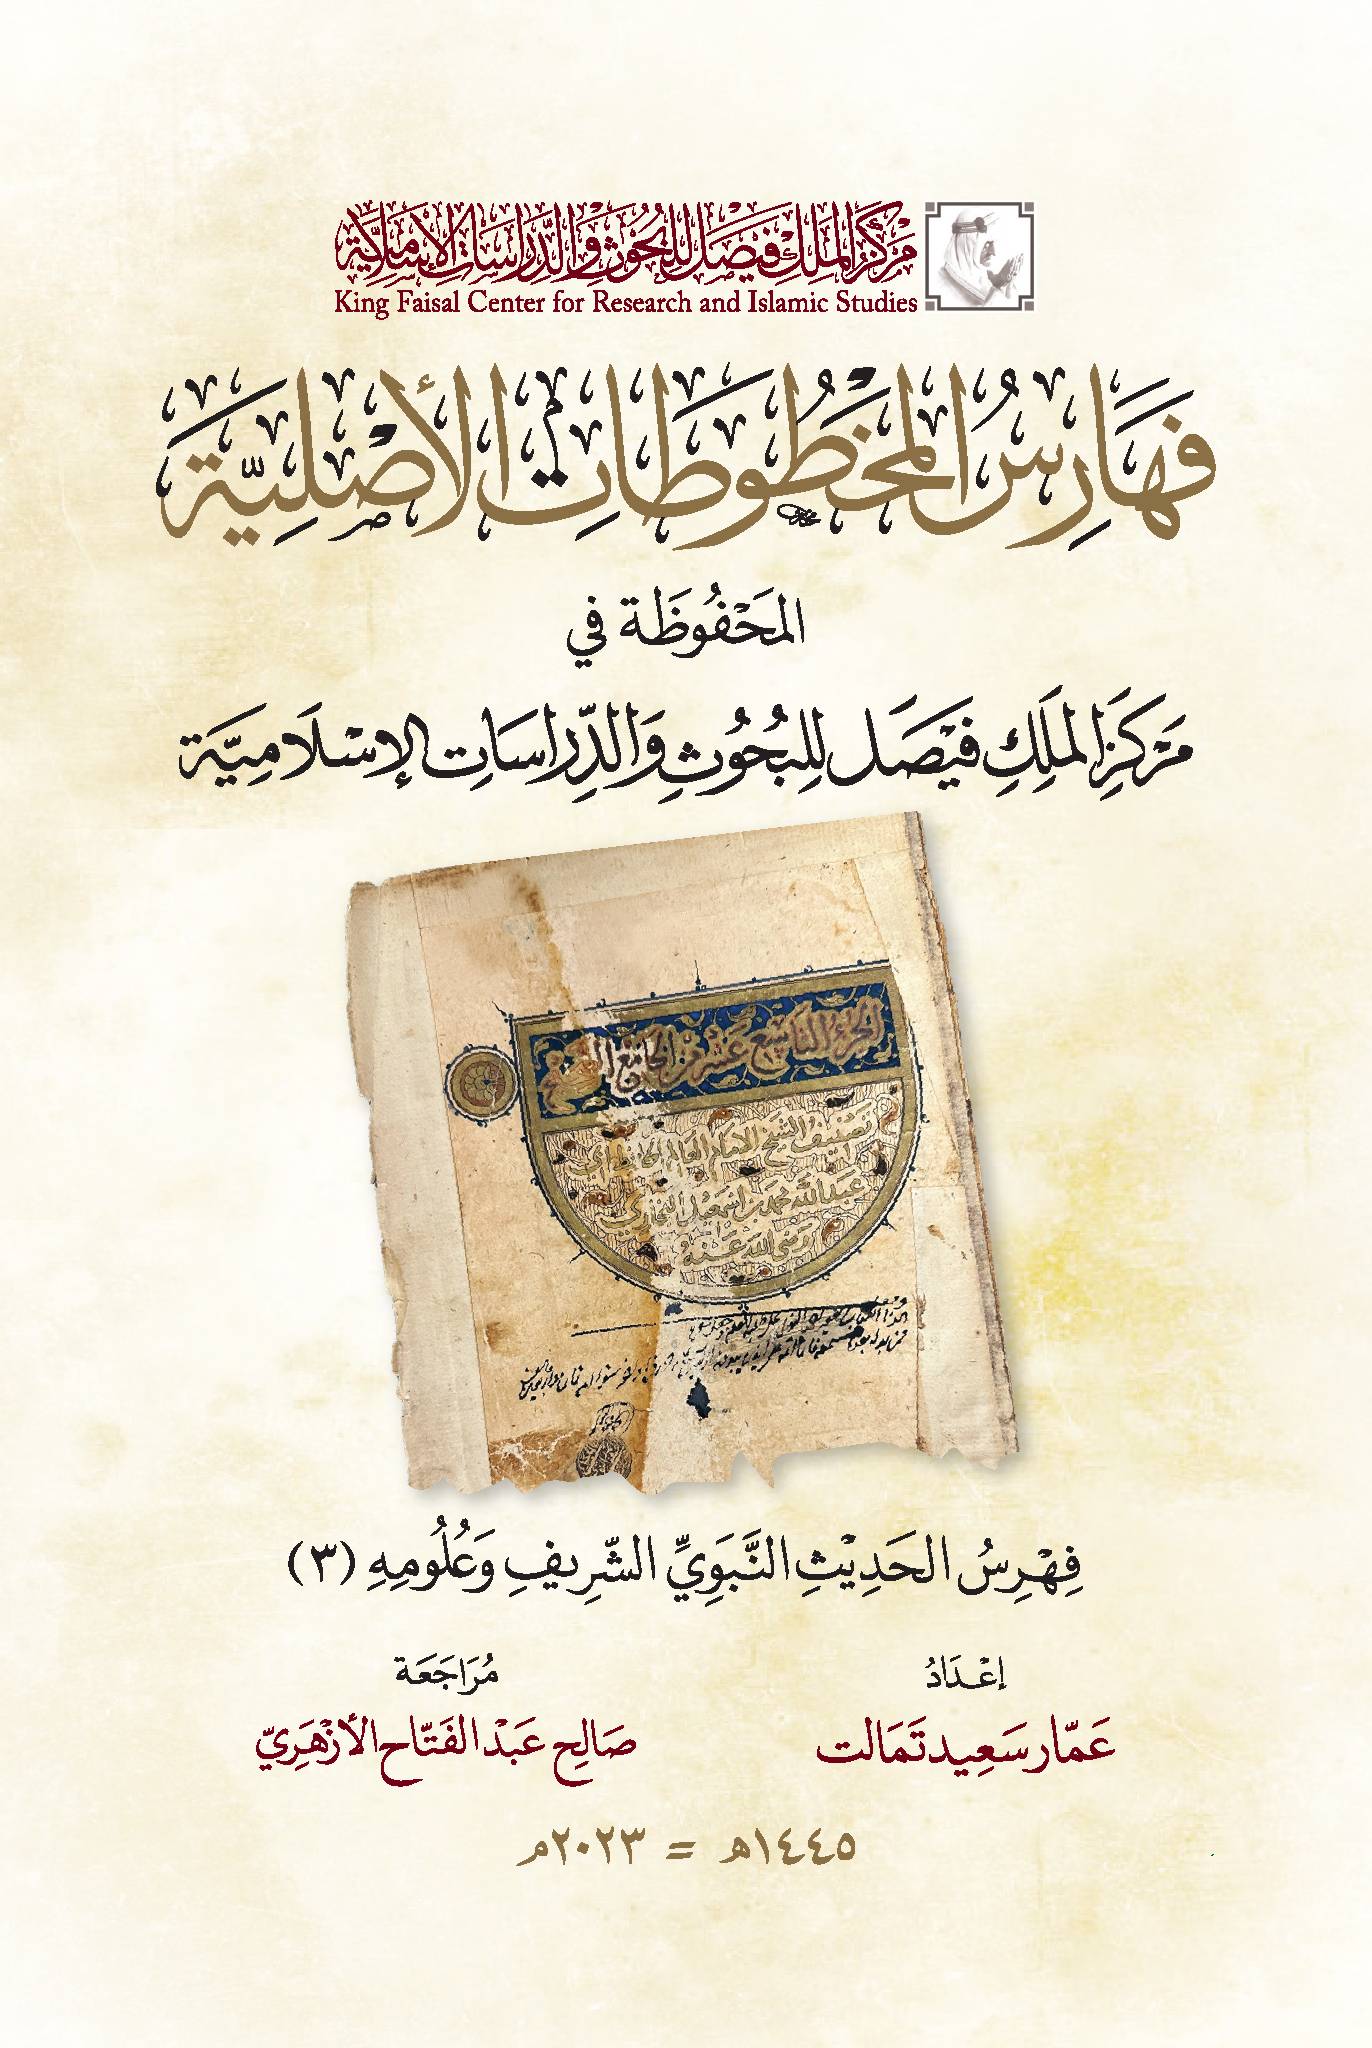 مَرْكَزُ المَلِك فَيْصَل لِلبُحُوْثِ وَالدِّرَاسَاتِ الإِسْلَامِيَّة
King Faisal Center for Research and Islamic Studies
فَهَارِسُ المَخْطُوطَاتِ الأَصْلِيَّة
المَحْفُوظَة في
مَرْكَزِ المَلَكِ فَيْصَل لِلبُحُوْثِ وَالدِّرَاسَاتِ الإِسْلَامِيَّة
الجزء التاسع عشر من الجامع الصحيح
تصنيف الشيخ الامام العالم الحافظ ابي
عبد الله محمد بن اسمعيل البخاري
رضي الله عنه
فِهْرِسُ الحَدِيْثِ النَّبَوِيِّ الشَّرِيفِ وَعُلُومِهِ (٣)
إعْدَادُ
عَمّار سَعِيد تَمَالت
مُرَاجَعَة
صَالِح عَبْد الفَتّاح الأزْهَرِيّ
١٤٤٥هـ = ٢٠٢٣م